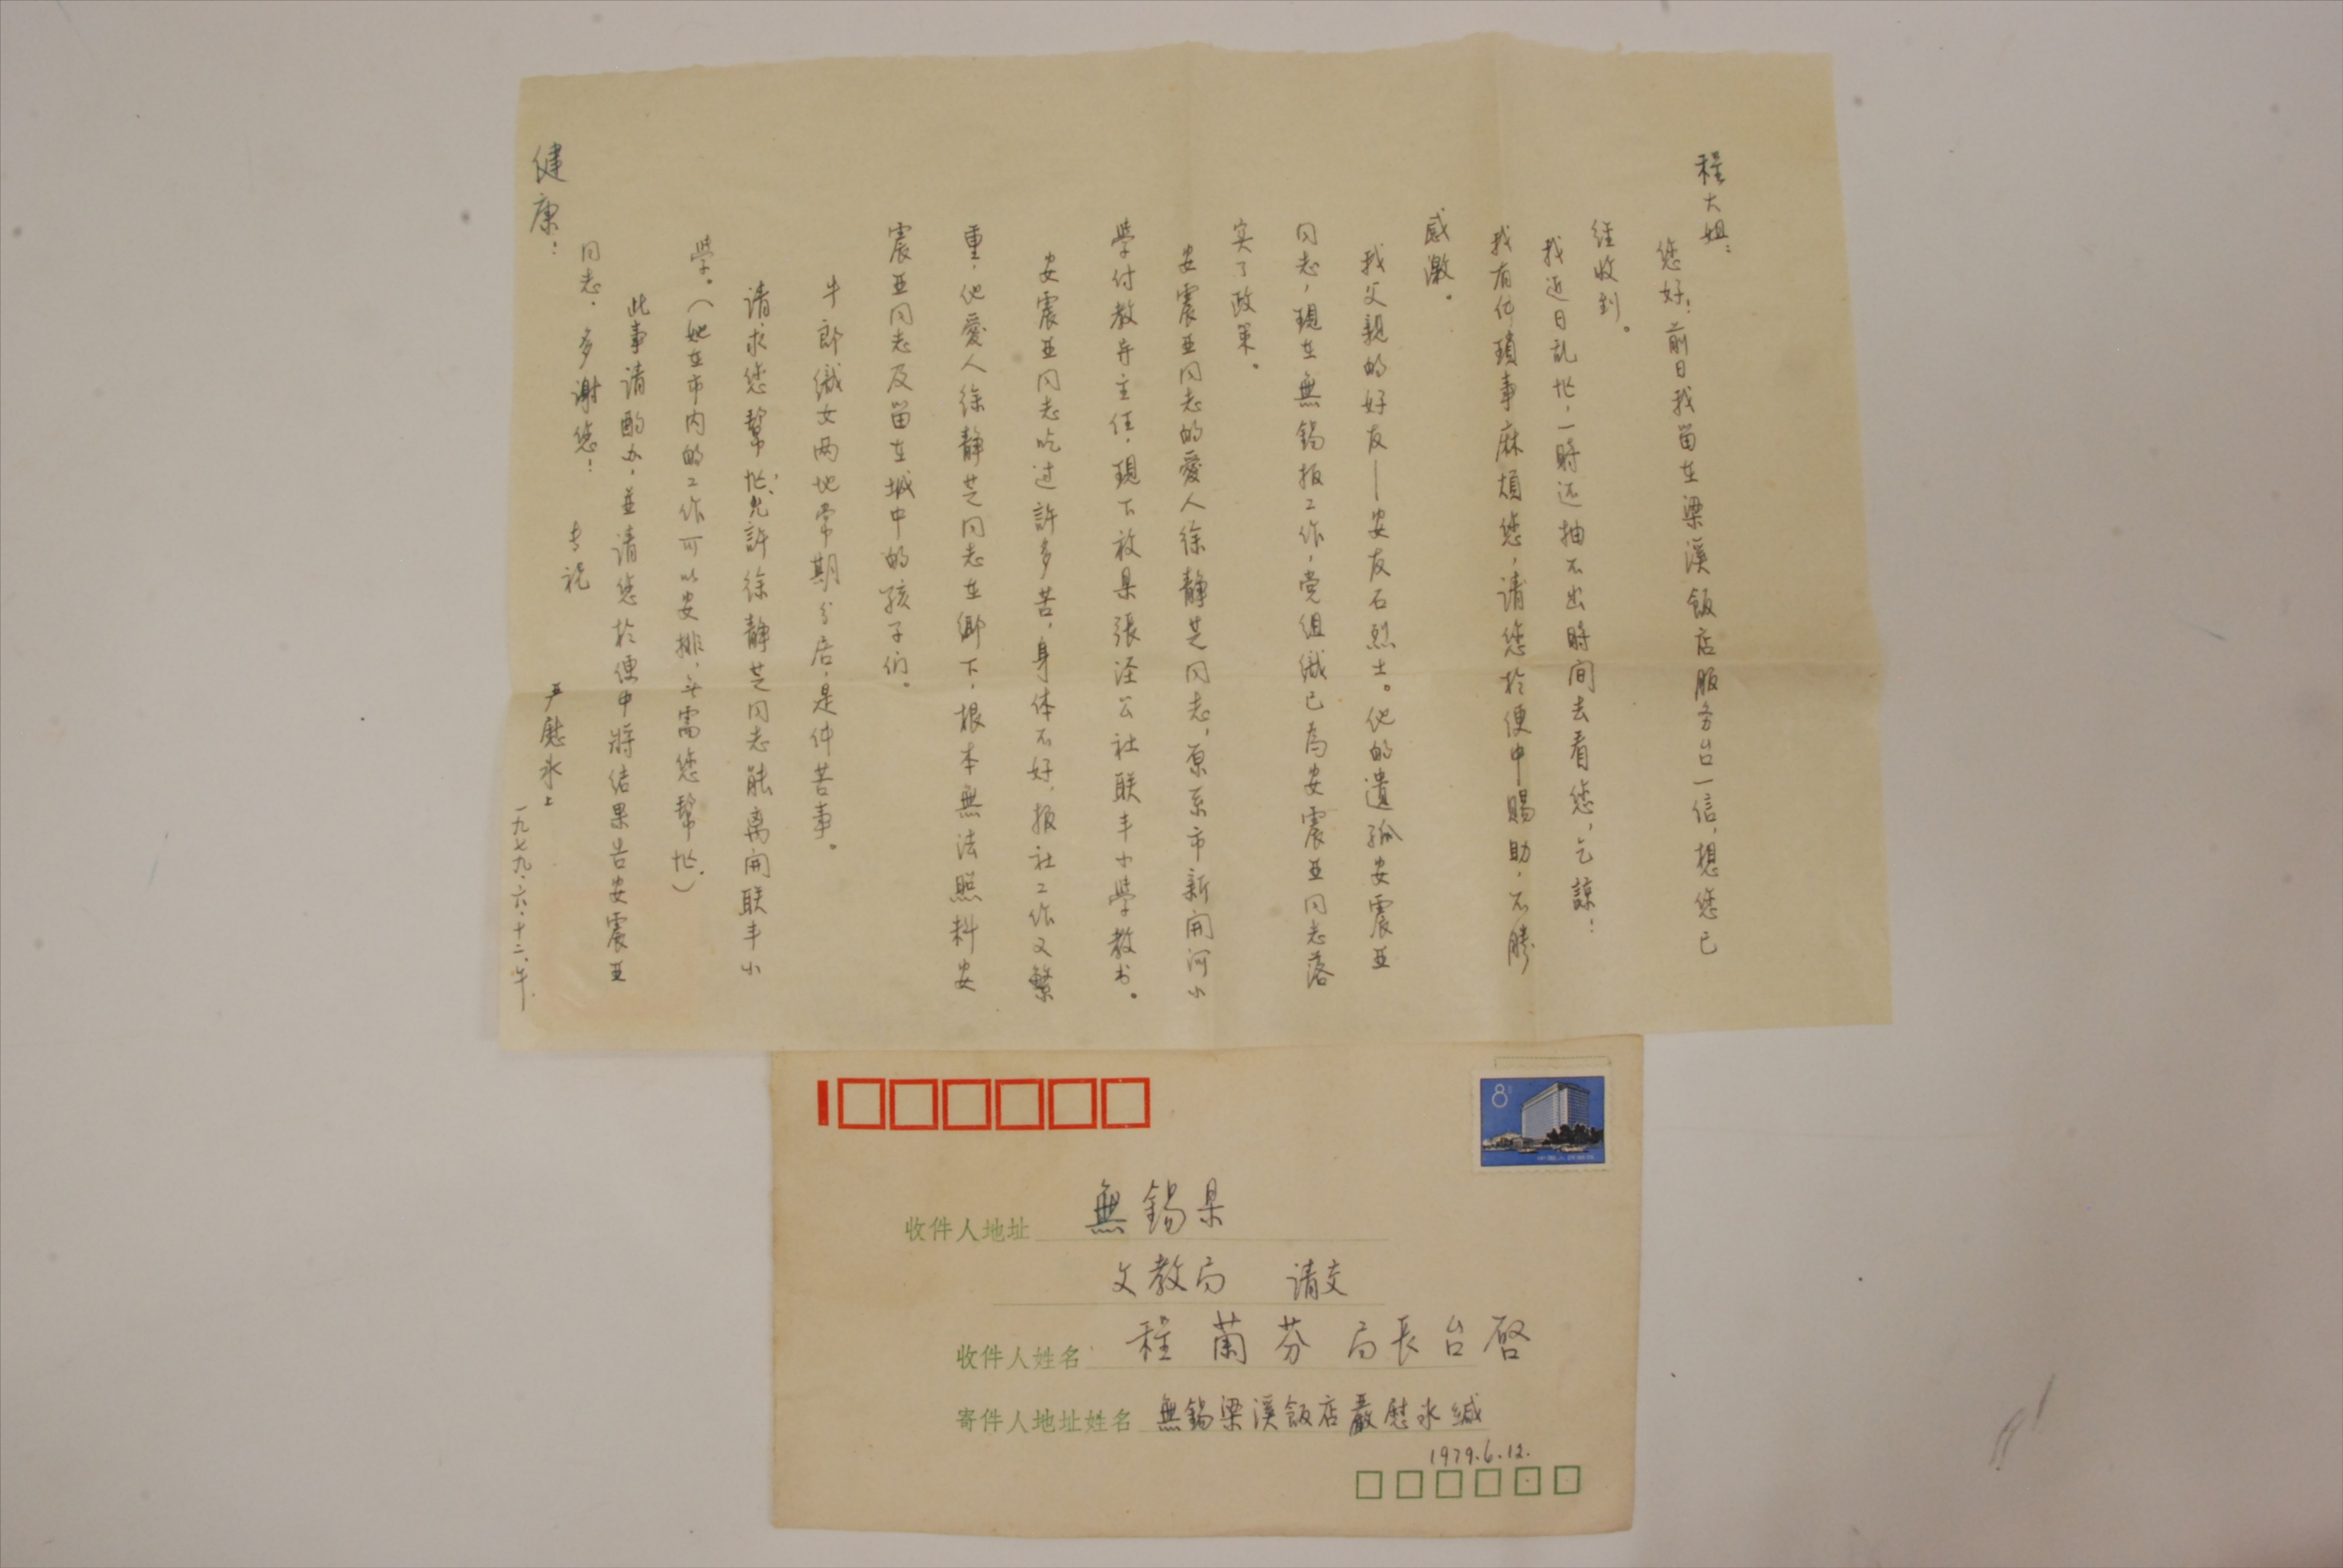 程大姐：
您好！前日我留在梁溪飯店服务台一信，想您已
经收到。
我近日乱忙，一時还抽不出時间去看您，乞諒！
我有件瑣事麻煩您，请您於便中賜助，不勝
感激。
我父親的好友——安友石烈士。他的遺孤安震亚
同志，現在無錫报工作，党组織已為安震亚同志落
实了政策。
安震亚同志的愛人徐静芝同志，原系市新開河小
學付教导主任，現下放县張泾公社联丰小學教书。
安震亚同志吃过許多苦，身体不好，报社工作又繁
重，他愛人徐静芝同志在鄉下，根本無法照料安
震亚同志及留在城中的孩子们。
牛郎織女两地常期分居，是件苦事。
请求您幫忙，允許徐静芝同志能离開联丰小
學。（她在市内的工作可以安排，不需您幫忙。）
此事请酌办，並请您於便中將结果告安震亚
同志。多謝您！
专祝
健康！
严慰冰上
一九七九．六．十二．午．
8
中国人民邮政
收件人地址 無錫县
文教局 请交
收件人姓名 程蘭芬局長台啓
寄件人地址姓名 無錫梁溪飯店嚴慰冰缄
1979.6.12.